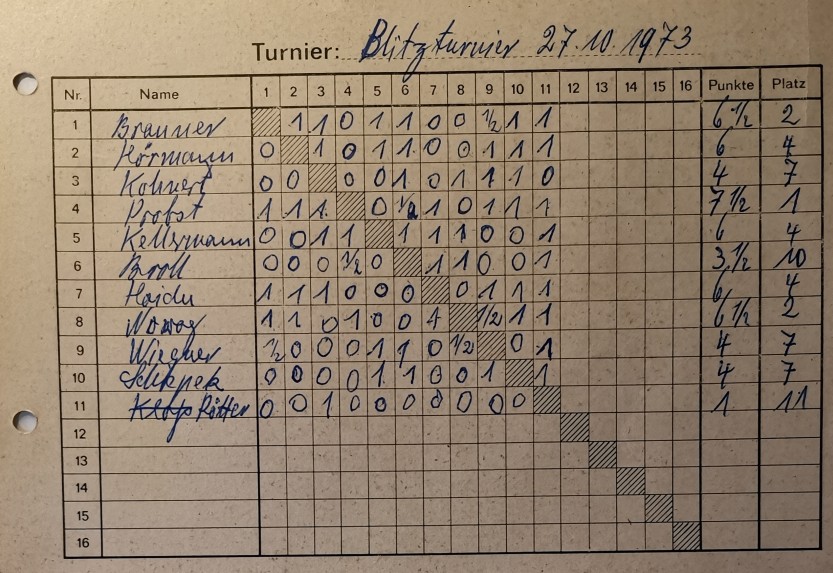 Turnier: Blitzturnier 27.10.1973
Nr. Name 1 2 3 4 5 6 7 8 9 10 11 12 13 14 15 16 Punkte Platz
1 Brauner 1 1 0 1 1 0 0 1/2 1 1 6 1/2 2
2 Hörmann 0 1 0 1 1 0 0 1 1 1 6 4
3 Kohnert 0 0 0 0 1 0 1 1 1 0 4 7
4 Probst 1 1 1 0 1/2 1 0 1 1 1 7 1/2 1
5 Kellermann 0 0 1 1 1 1 1 0 0 1 6 4
6 Broll 0 0 0 1/2 0 1 1 0 0 1 3 1/2 10
7 Hajdu 1 1 1 0 0 0 0 1 1 1 6 4
8 1 1 0 1 0 0 1 1/2 1 1 6 1/2 2
9 Wiegner 1/2 0 0 0 1 1 0 1/2 0 1 4 7
10 0 0 0 0 1 1 0 0 1 1 4 7
11 Rötter 0 0 1 0 0 0 0 0 0 0 1 11
12
13
14
15
16